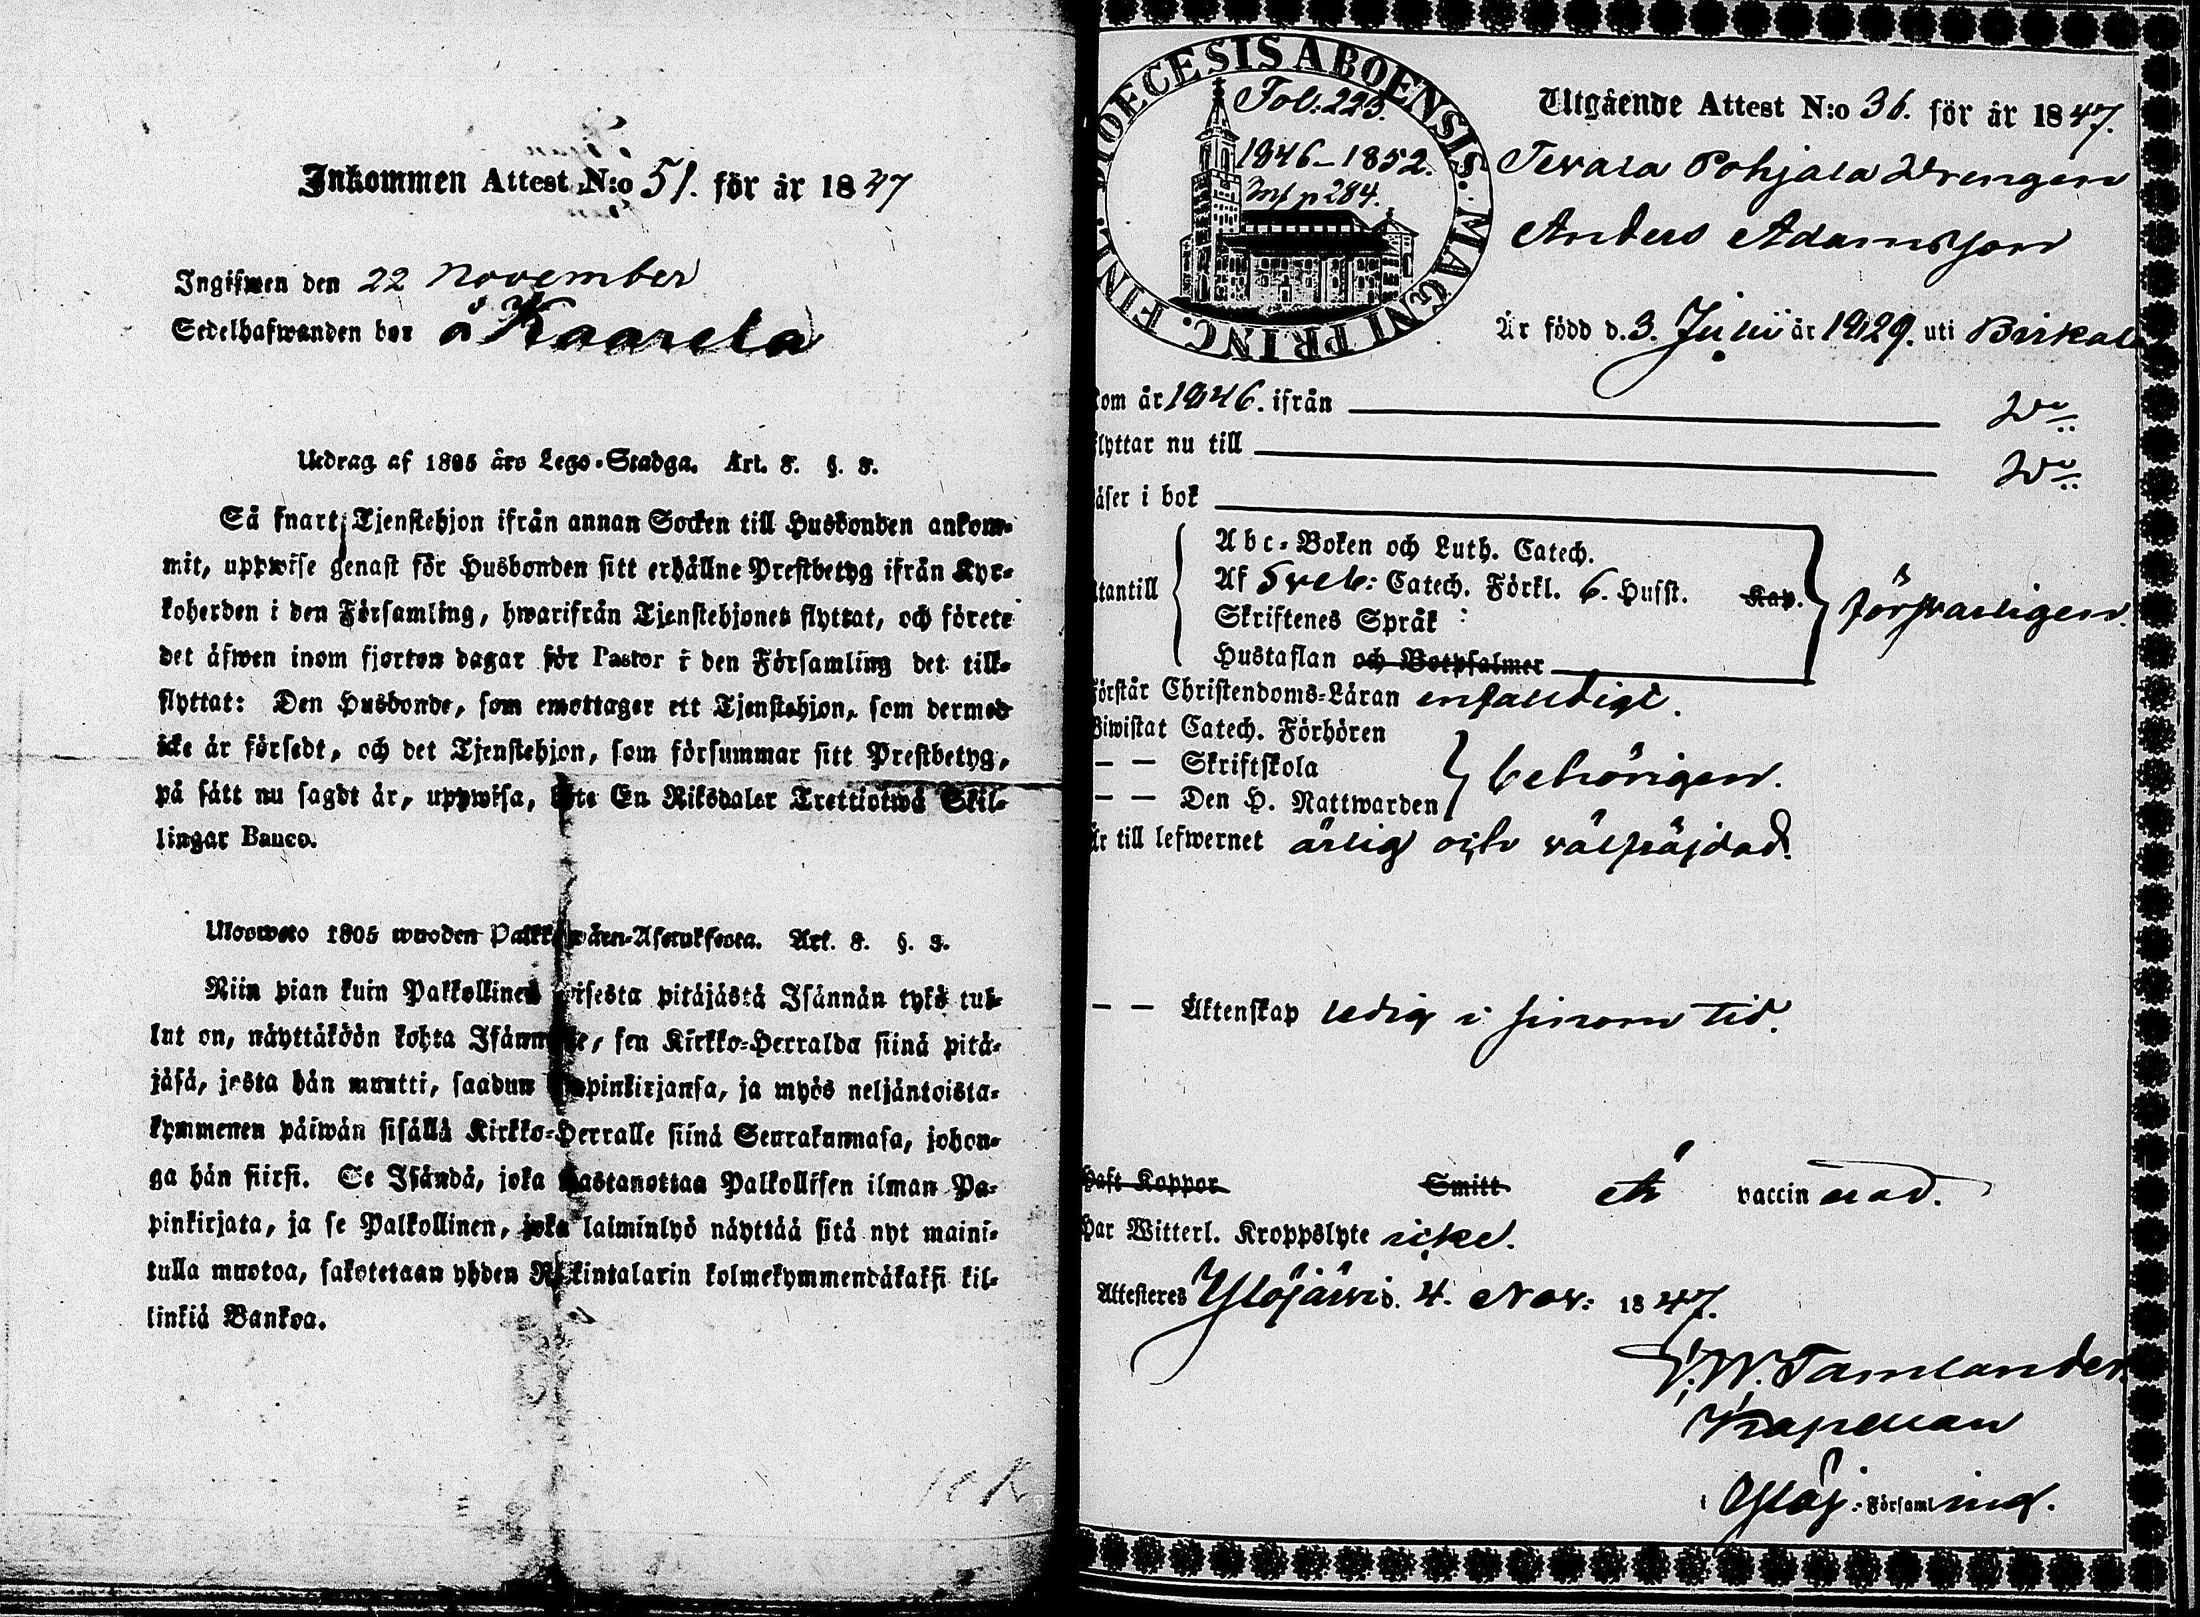 Inkommen Attest N:o 51. för år 1847
Ingifwen den 22 November
Sedelhafwanden bor å Kaarela
Utdrag af 1805 års Lego-Stadga. Art. 8. §. 3.
Så snart Tjenstehjon ifrån annan Socken till Husbonden ankom-
mit, uppwise genast för Husbonden sitt erhållne Prestbetyg ifrån Kyr-
koherden i den Församling, hwarifrån Tjenstehjonet flyttat, och förete
det äfwen inom fjorton dagar för Pastor i den Församling det till-
flyttat: Den Husbonde, som emottager ett Tjenstehjon, som dermed
icke är försedt, och det Tjenstehjon, som försummar sitt Prestbetyg,
på sätt nu sagdt är, uppwisa, böte En Riksdaler Trettiotwå Skil-
lingar Banco.
Ulosweto 1805 wuoden Palkkawäen-Asetuksesta. Art. 8. §. 3.
Niin pian kuin Palkollinen toisesta pitäjästä Isännän tykö tul-
lut on, näyttäköön kohta Isännälle, sen Kirkko-Herralda siinä pitä-
jäsä, josta hän muutti, saadun Papinkirjansa, ja myös neljäntoista-
kymmenen päiwän sisällä Kirkko-Herralle siinä Seurakunnasa, johon-
ga hän siirsi. Se Isändä, joka wastanottaa Palkollisen ilman Pa-
pinkirjata, ja se Palkollinen, joka laiminlyö näyttää sitä nyt maini-
tulla muotoa, sakotetaan yhden Rikintalarin kolmekymmendäkaksi kil-
linkiä Bankoa.
10 K
DIOECESIS ABOENSIS. MAGNI PRINC. FINL.
Fol. 223.
1846-1852.
Inf p 284.
Utgående Attest N:o 36. för år 1847.
Tevala Pohjala Drengen
Anders Adamsson
Är född d. 3. Julii år 1829. uti Birkala
kom år 1846. ifrån Do
flyttar nu till Do
läser i bok
utantill
Abc-Boken och Luth. Catech.
Af Sveb: Catech. Förkl. 6. Husst. Kap.
Skriftenes Språk
Hustaflan och Botpsalmer
försvarligen.
förstår Christendoms-Läran enfaldigt.
Biwistat Catech. Förhören
— — Skriftskola
— — Den H. Nattwarden
behörigen.
Är till lefwernet ärlig och välfräjdad.
— — Äktenskap ledig i sinom tid.
Haft Koppor Smitt Är vaccinerad.
Har Witterl. Kroppslyte icke.
Attesteres Ylöjärvi d. 4. Nov: 1847.
J. W. Tamlander
Kapellan
i Ylöj. Församling.